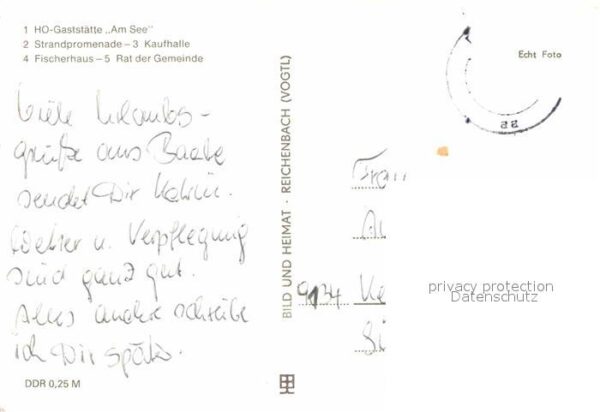 1 HO-Gaststätte „Am See"
2 Strandpromenade – 3 Kaufhalle
4 Fischerhaus – 5 Rat der Gemeinde
Viele Urlaubs-
grüße aus Baabe
sendet Dir Katrin.
Wetter u. Verpflegung
sind ganz gut.
Alles andere schreibe
ich Dir später.
DDR 0,25 M
BILD UND HEIMAT · REICHENBACH (VOGTL)
Echt Foto
Frau
9134
privacy protection
Datenschutz